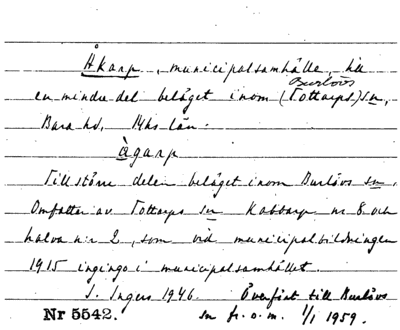 Åkarp, municipalsamhälle, till
en mindre del beläget inom (Tottarps) sn, Burlövs
Bara hd, Mhs län.
àgarp
Till större delen beläget inom Burlövs sn.
Omfattar av Tottarps sn Kabbarp nr 8 och
halva nr 2, som vid municipalbildningen
1915 ingingo i municipalsamhället.
I. Ingers 1946. Överfört till Burlövs
Nr 5542. sn fr.o.m. 1/1 1959.